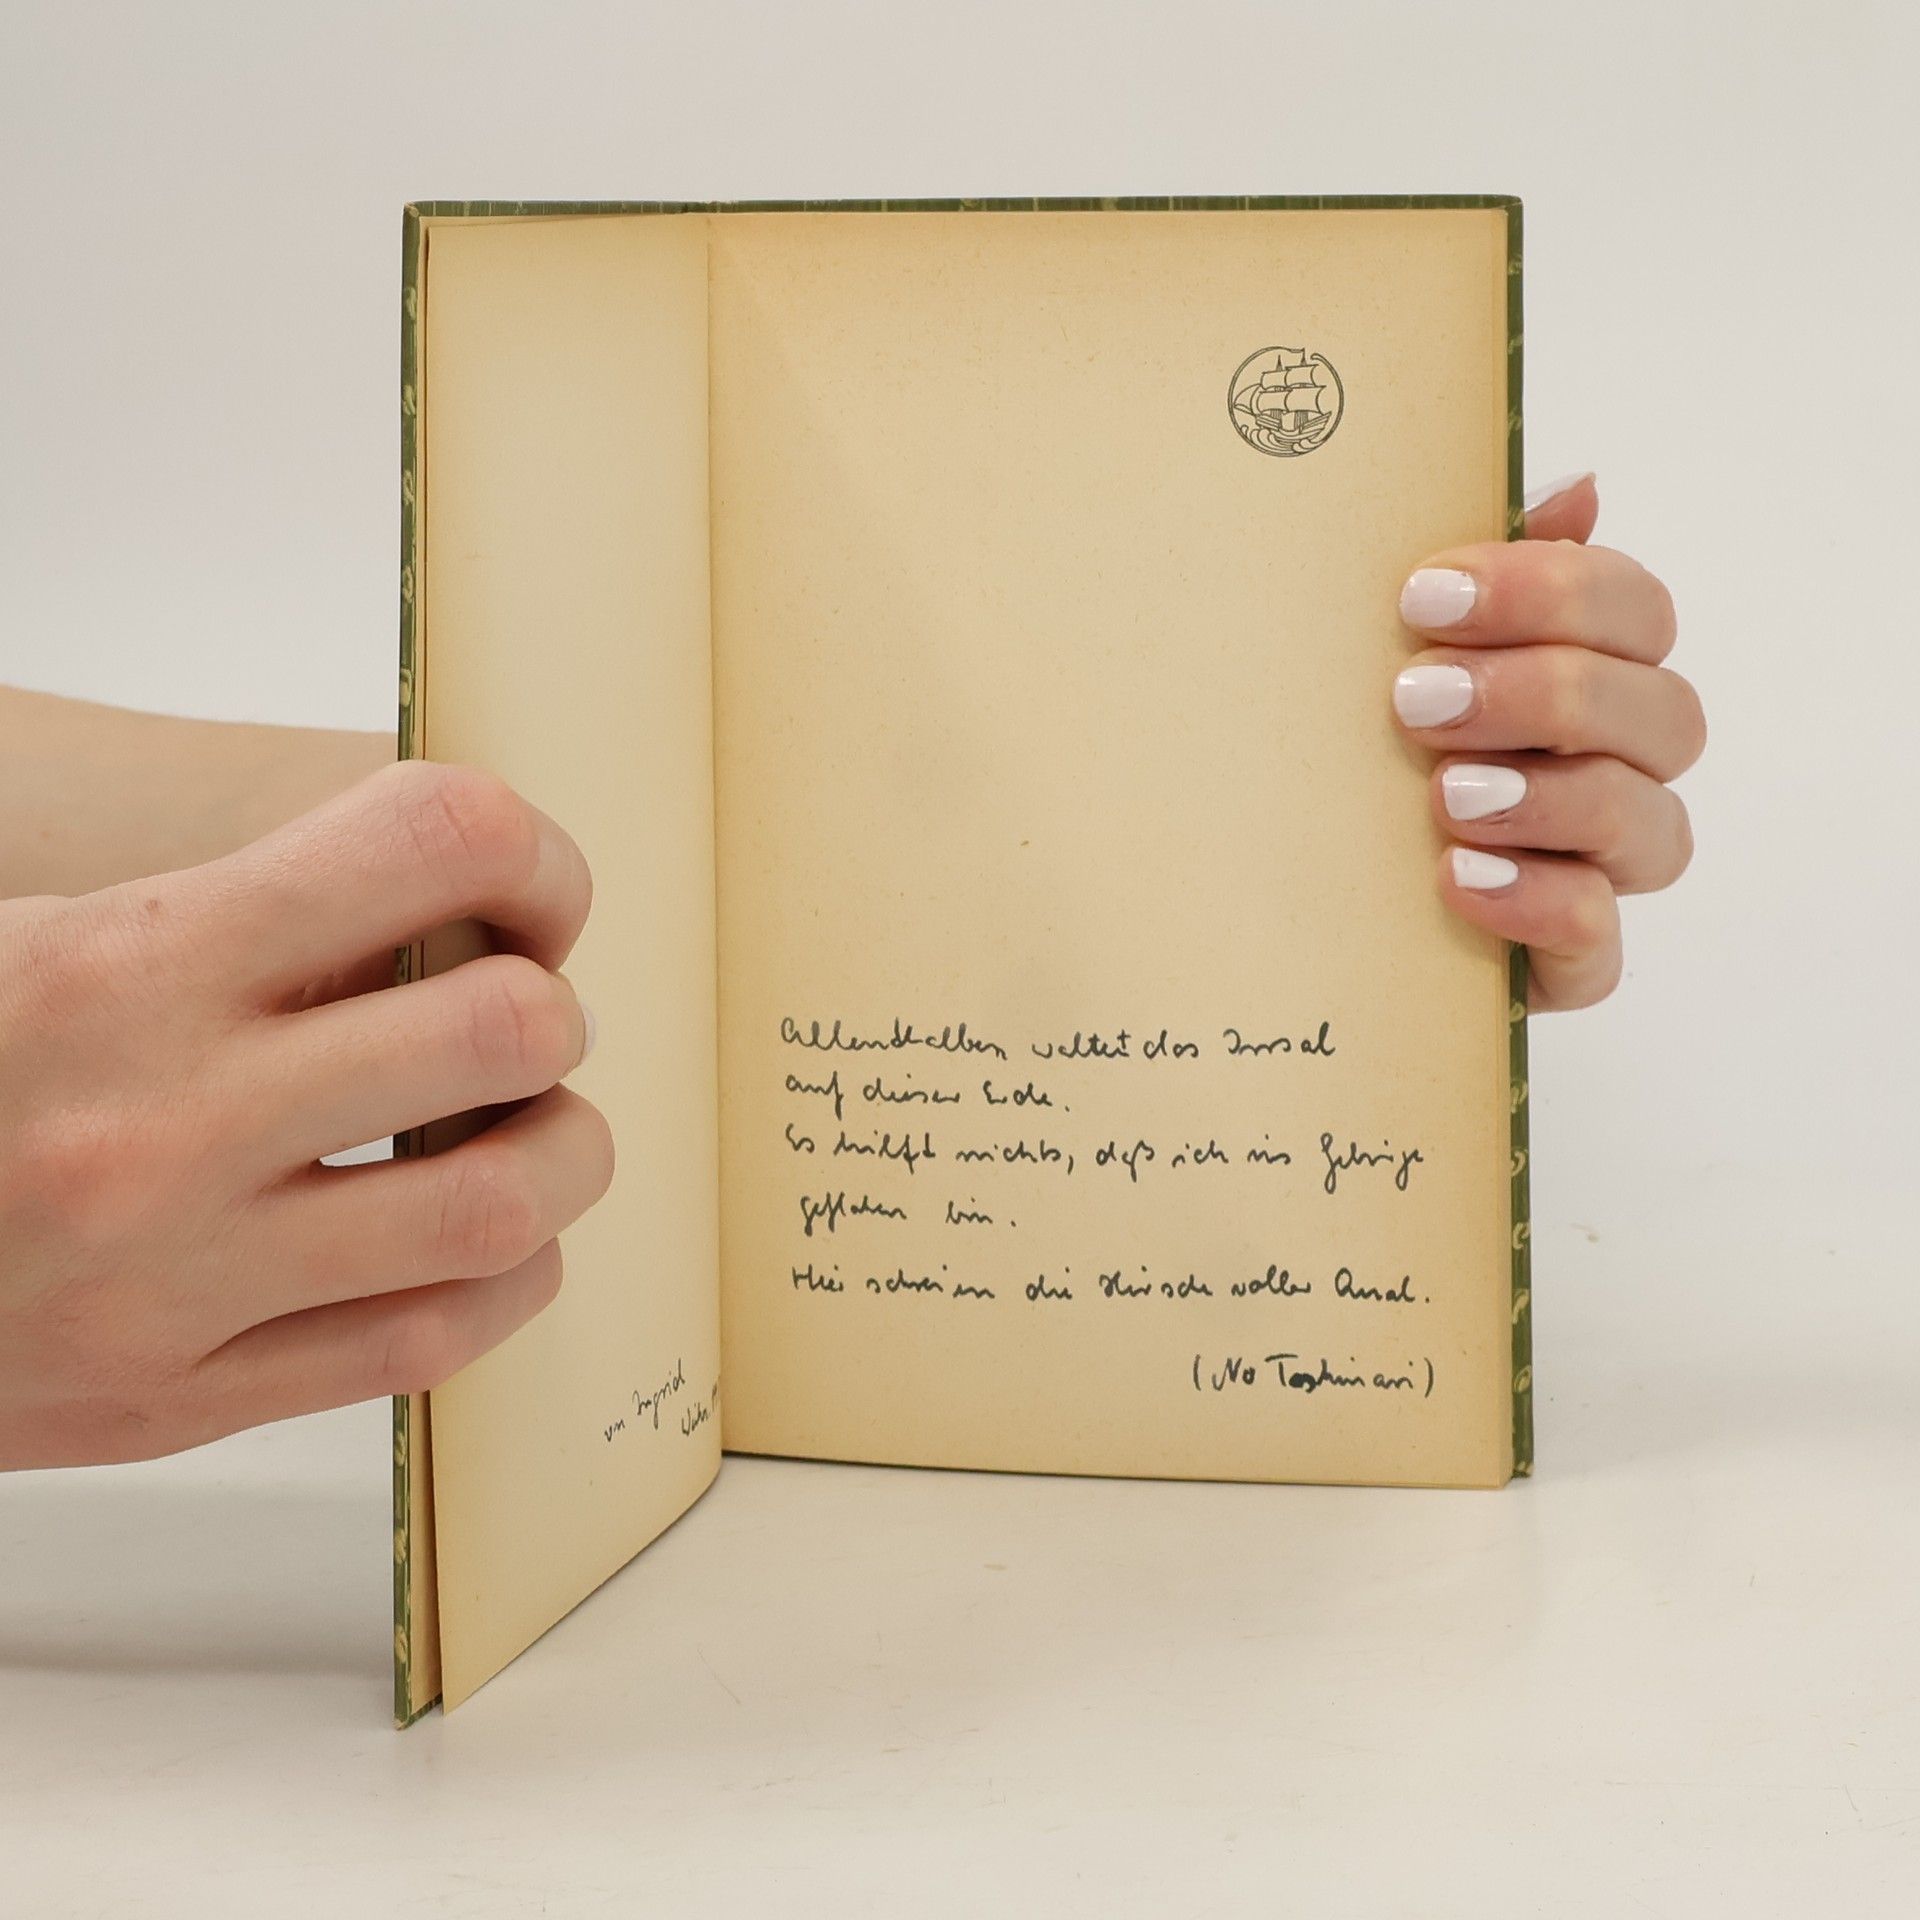 von Ingrid
Allenthalben waltet das Irrsal
auf dieser Erde.
Es hilft nichts, daß ich ins Gebirge
geflohen bin.
Hier schreien die Hirsche voller Qual.
(No Toshinari)